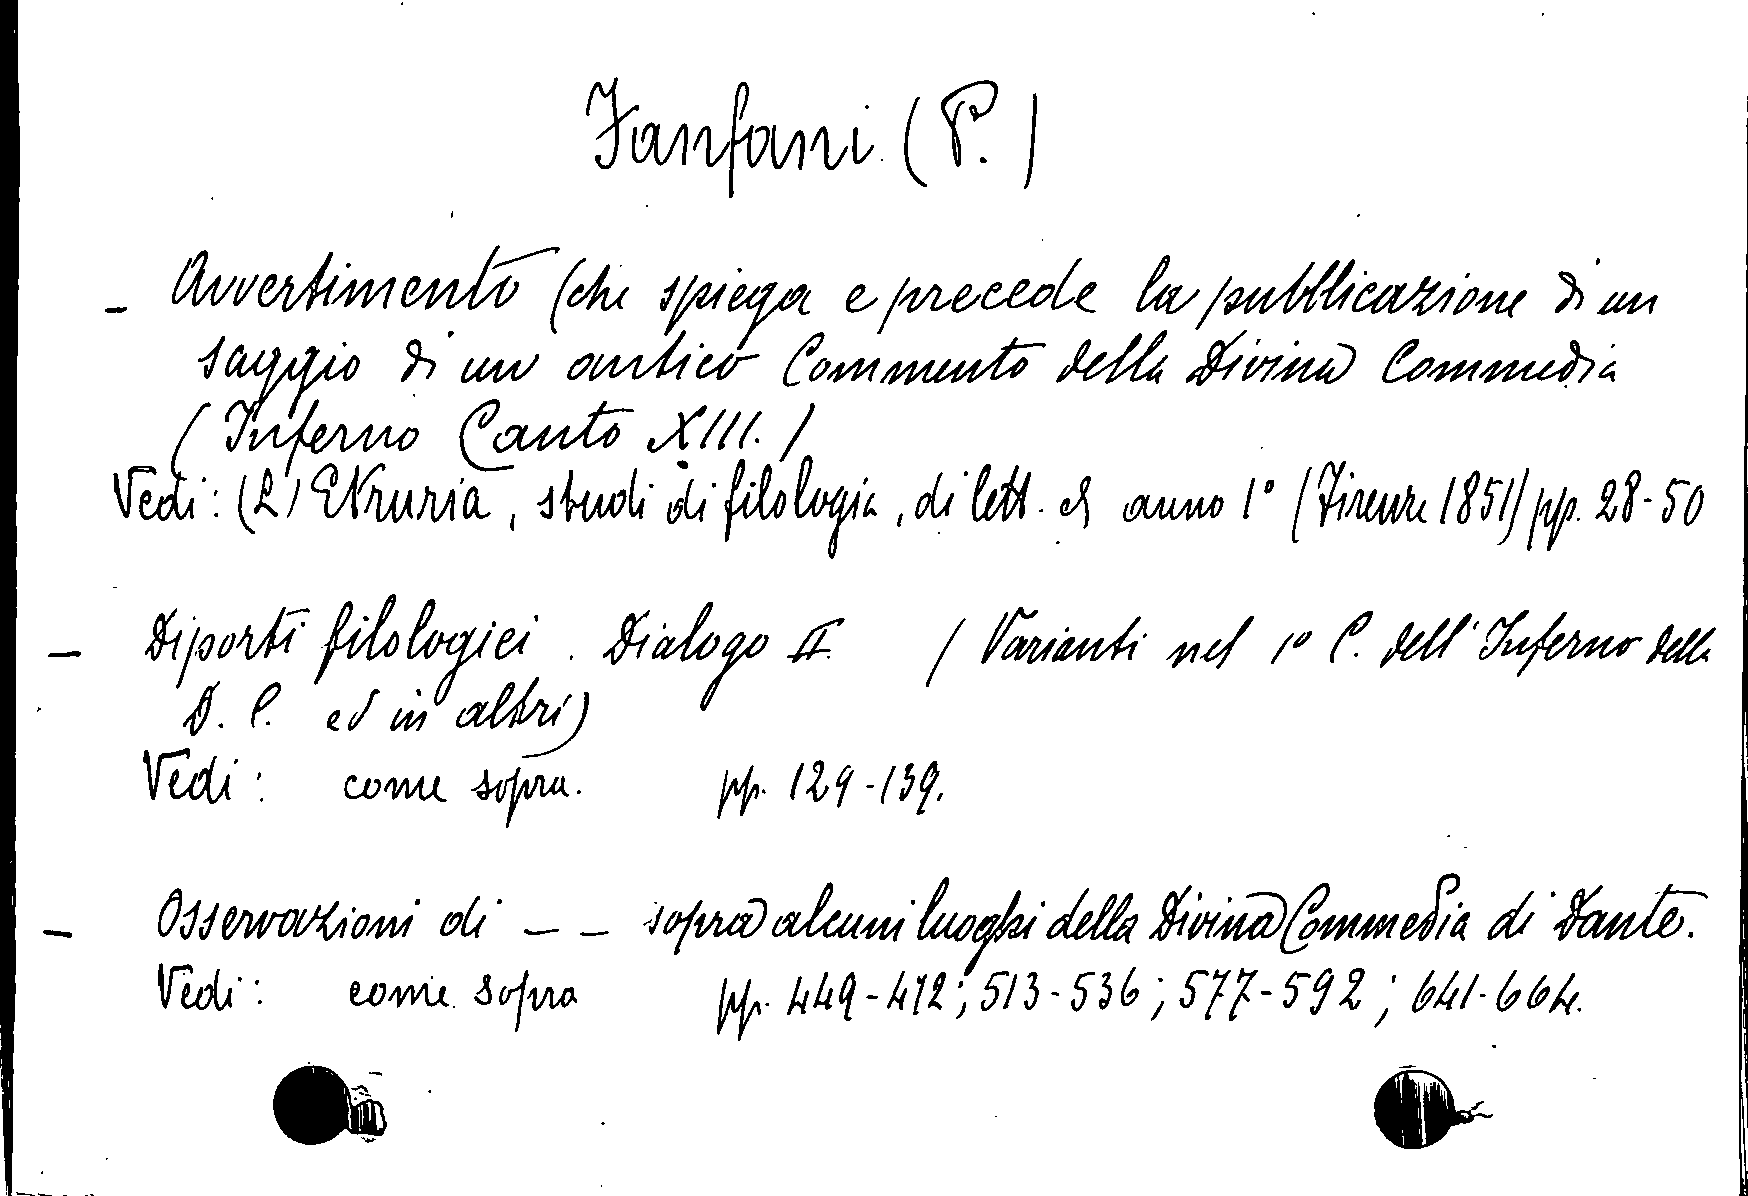 Fanfani (P.)
- Avvertimento (che spiega e precede la pubblicazione di un
saggio di un antico Commento della Divina Commedia
(Inferno Canto XIII.)
Vedi: (L') Etruria, studi di filologia, di lett. anno 1° (Firenze 1851) pp. 28-50
- Diporti filologici. Dialogo II. (Varianti nel 1° C. dell'Inferno della
D. C. ed in altri)
Vedi: come sopra. pp. 129-139.
- Osservazioni di - - sopra alcuni luoghi della Divina Commedia di Dante.
Vedi: come sopra pp. 449-472; 513-536; 577-592; 641-664.